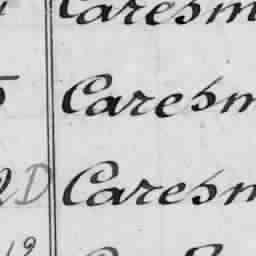 Caresm
5 Caresm
2D Caresm
19